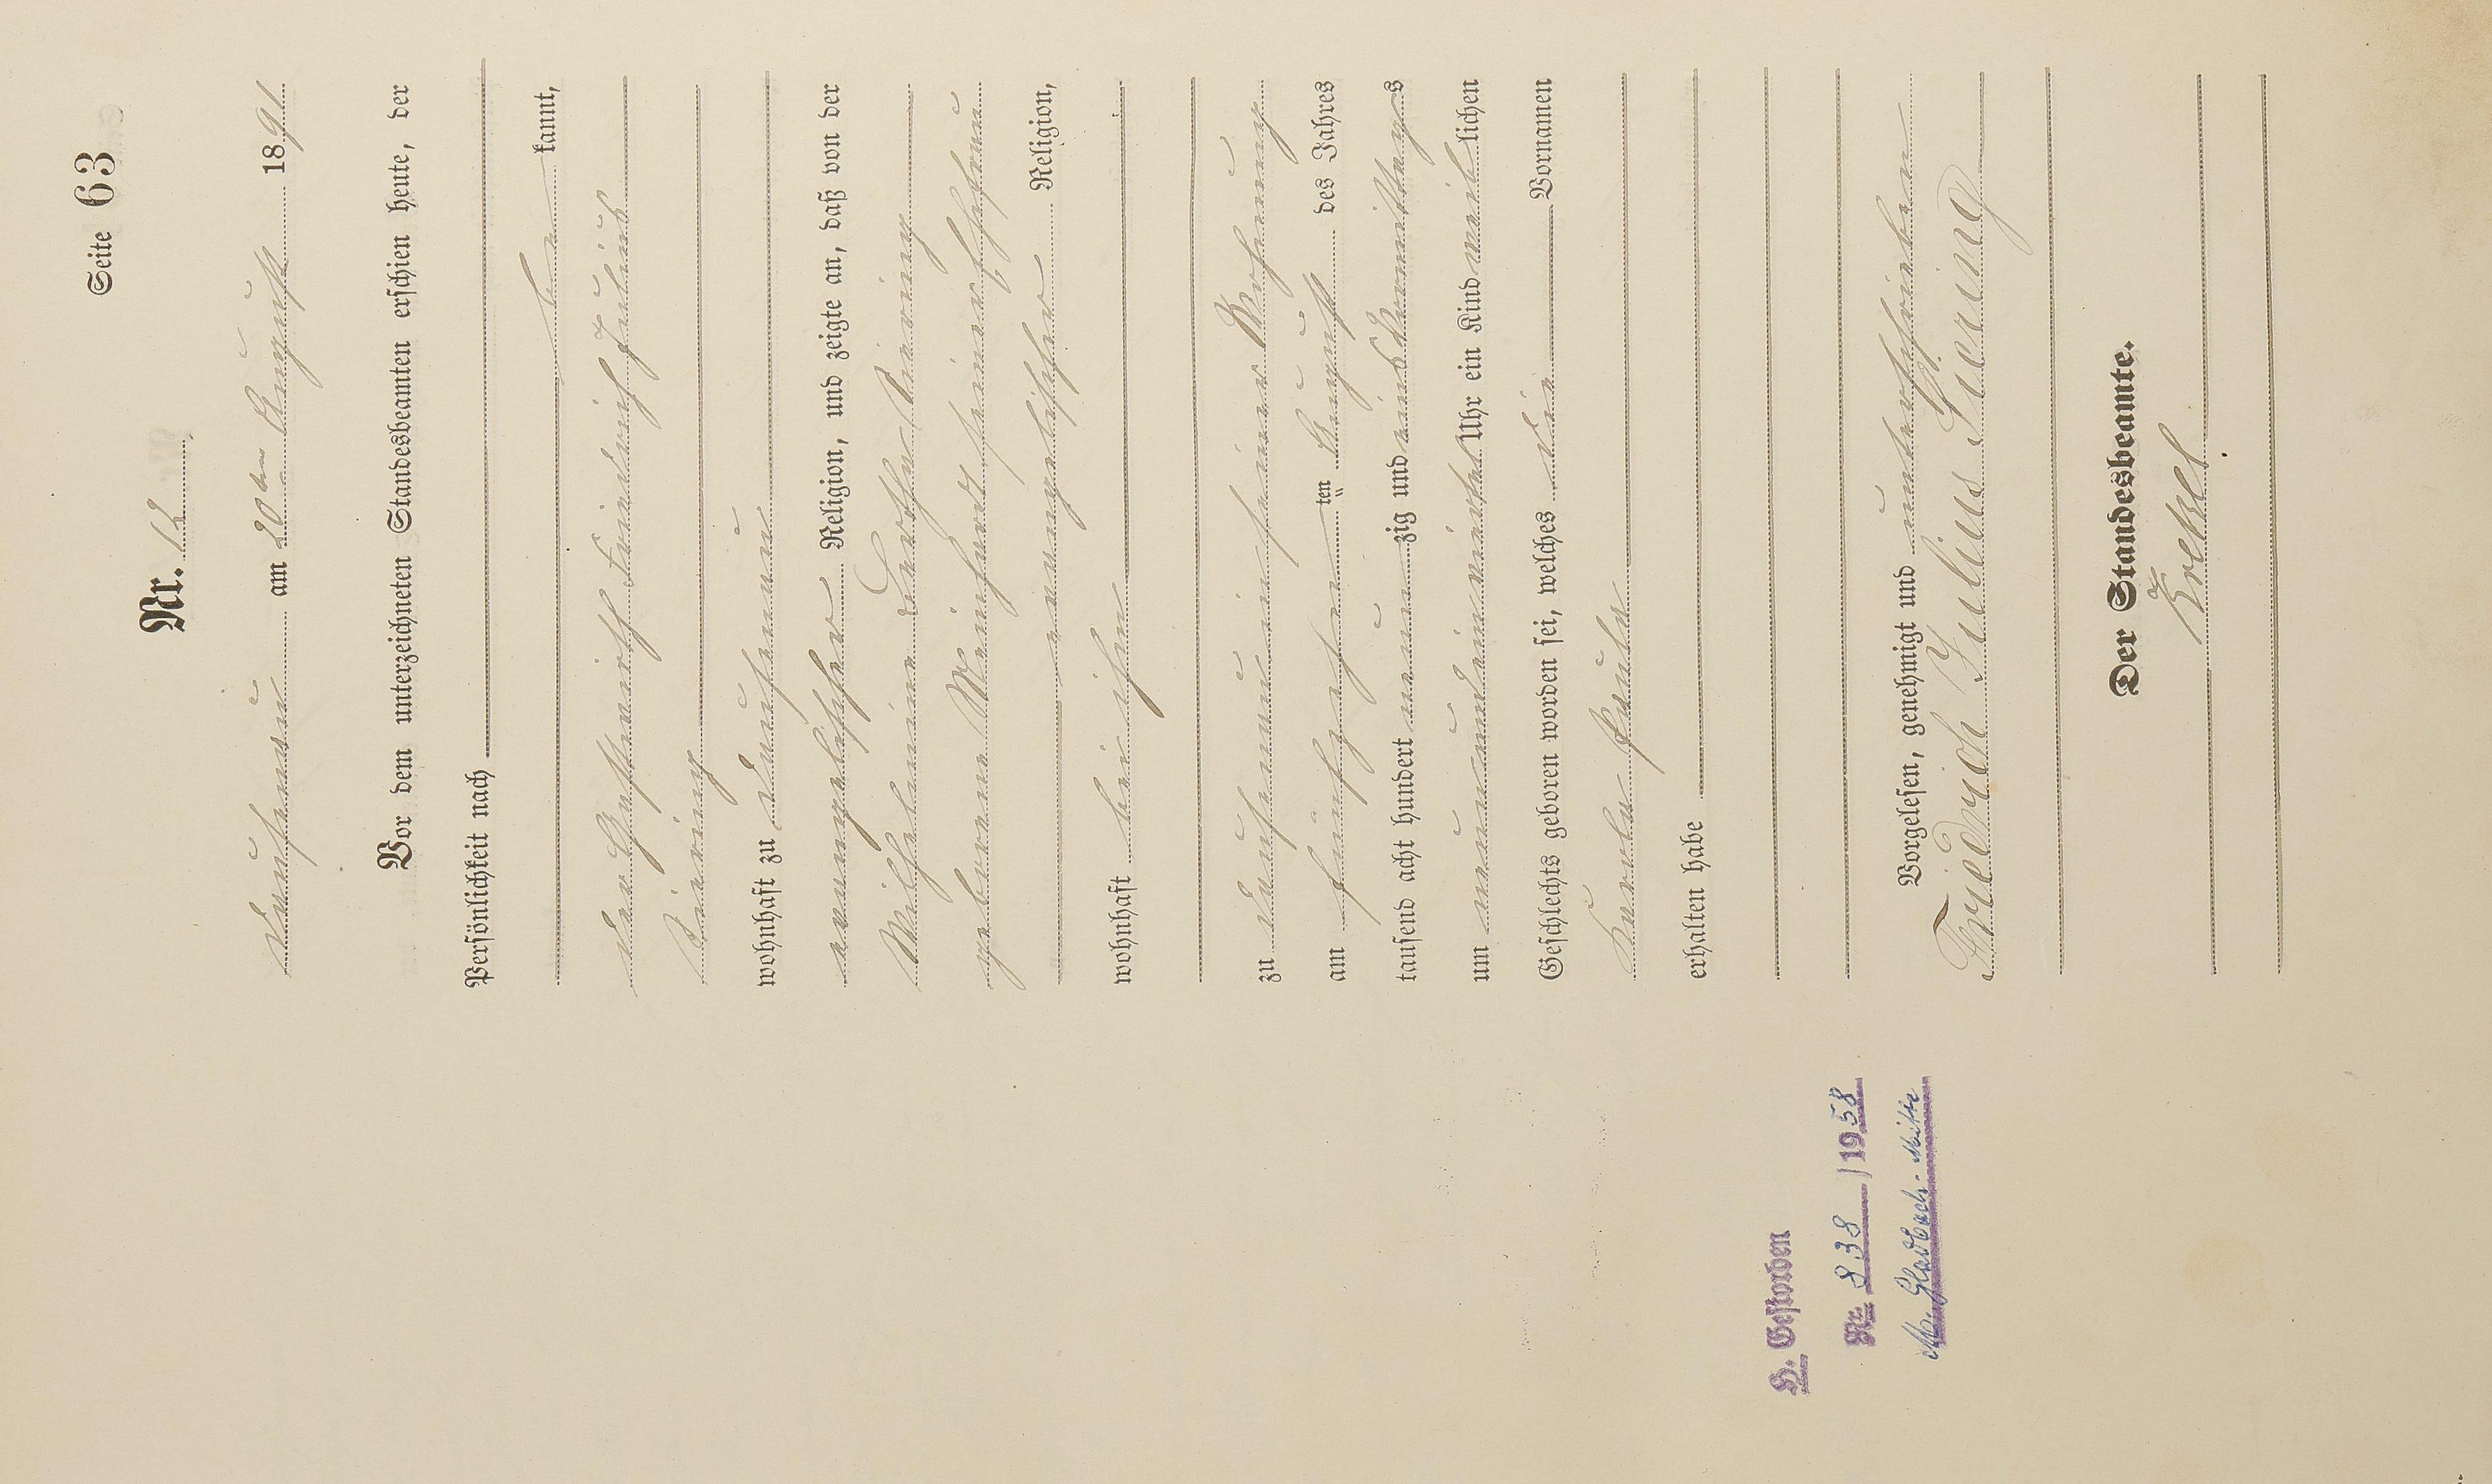 Seite 63
Nr. 12.
Dausenau am 20ten August 1891
Vor dem unterzeichneten Standesbeamten erschien heute, der
Persönlichkeit nach
be kannt,
der Gastwirth Friedrich Julius
Siering
wohnhaft zu Dausenau
evangelischer Religion, und zeigte an, daß von der
Wilhelmine Siering
geborene Meinhardt seiner Ehefrau
evangelischer Religion,
wohnhaft bei ihm
zu Dausenau in seiner Wohnung
am fünfzehn ten August des Jahres
tausend acht hundert neun zig und eins Vormittags
um neun und ein viertel Uhr ein Kind weiblichen
Geschlechts geboren worden sei, welches die Vornamen
Paula
erhalten habe
Vorgelesen, genehmigt und unterschrieben
Friedrich Julius Siering
Der Standesbeamte.
H. Gestorben
Nr. 838 / 1958
M. Gladbach-Mitte